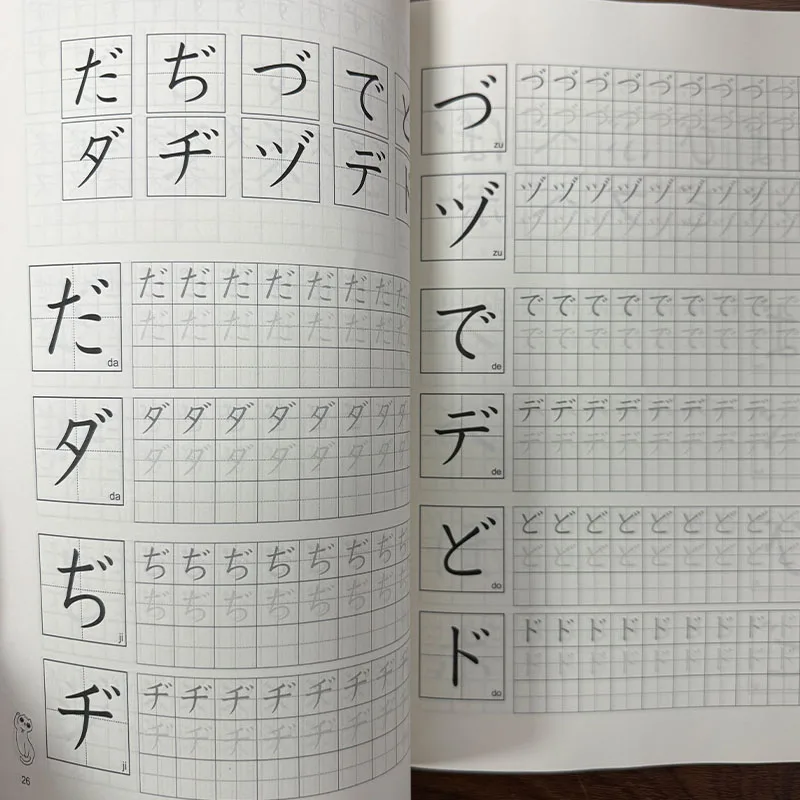 だ ぢ づ で ど
ダ ヂ ヅ デ ド
だ da だ だ だ だ だ だ だ だ
だ だ だ だ だ だ だ だ
ダ da ダ ダ ダ ダ ダ ダ ダ ダ
ダ ダ ダ ダ ダ ダ ダ ダ
ぢ ji ぢ ぢ ぢ ぢ ぢ ぢ ぢ ぢ
ぢ ぢ ぢ ぢ ぢ ぢ ぢ ぢ
ヂ ji ヂ ヂ ヂ ヂ ヂ ヂ ヂ ヂ
ヂ ヂ ヂ ヂ ヂ ヂ ヂ
26
づ zu づ づ づ づ づ づ づ づ づ
づ づ づ づ づ づ づ づ づ
ヅ zu ヅ ヅ ヅ ヅ ヅ ヅ ヅ ヅ ヅ
ヅ ヅ ヅ ヅ ヅ ヅ ヅ ヅ ヅ
で de で で で で で で で で で
で で で で で で で で で
デ de デ デ デ デ デ デ デ デ デ
デ デ デ デ デ デ デ デ デ
ど do ど ど ど ど ど ど ど ど ど
ど ど ど ど ど ど ど ど ど
ド do ド ド ド ド ド ド ド ド ド
ド ド ド ド ド ド ド ド ド